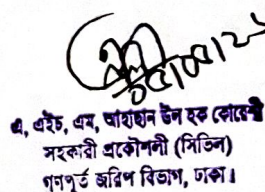 এ, এইচ, এম, আহছান উল হক কোরেশী
সহকারী প্রকৌশলী (সিভিল)
গনপূর্ত জরিপ বিভাগ, ঢাকা।